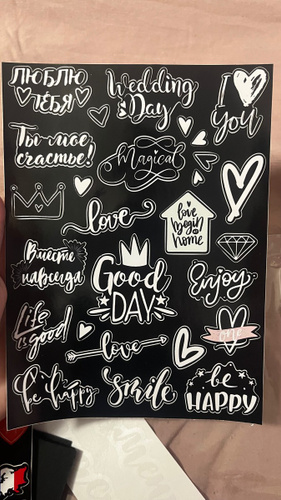 ЛЮБЛЮ
ТЕБЯ
Wedding
Day
I
you
Ты-мое
счастье!
Magical
love
love
begin
home
Вместе
навсегда
Good
DAY
Enjoy
Life
is good
love
be happy
Smile
be
HAPPY